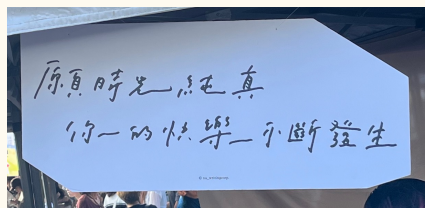 願時光純真
你一的快樂一不斷發生